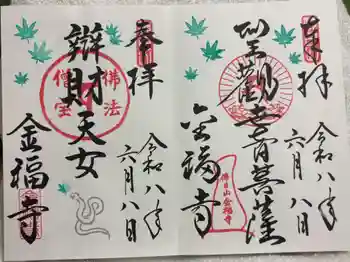 奉拝
聖観世音菩薩
金福寺
令和八年
六月八日
佛日山
金福寺
奉拝
辨財天女
金福寺
令和八年
六月八日
佛法
僧宝